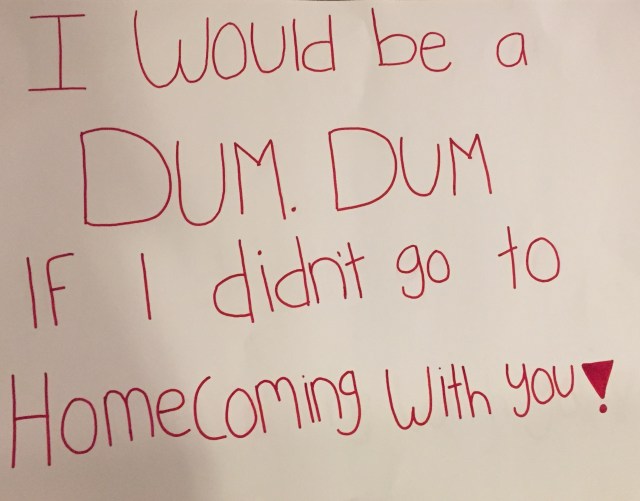 I Would be a
DUM. DUM
IF I didn't go to
Homecoming With you!